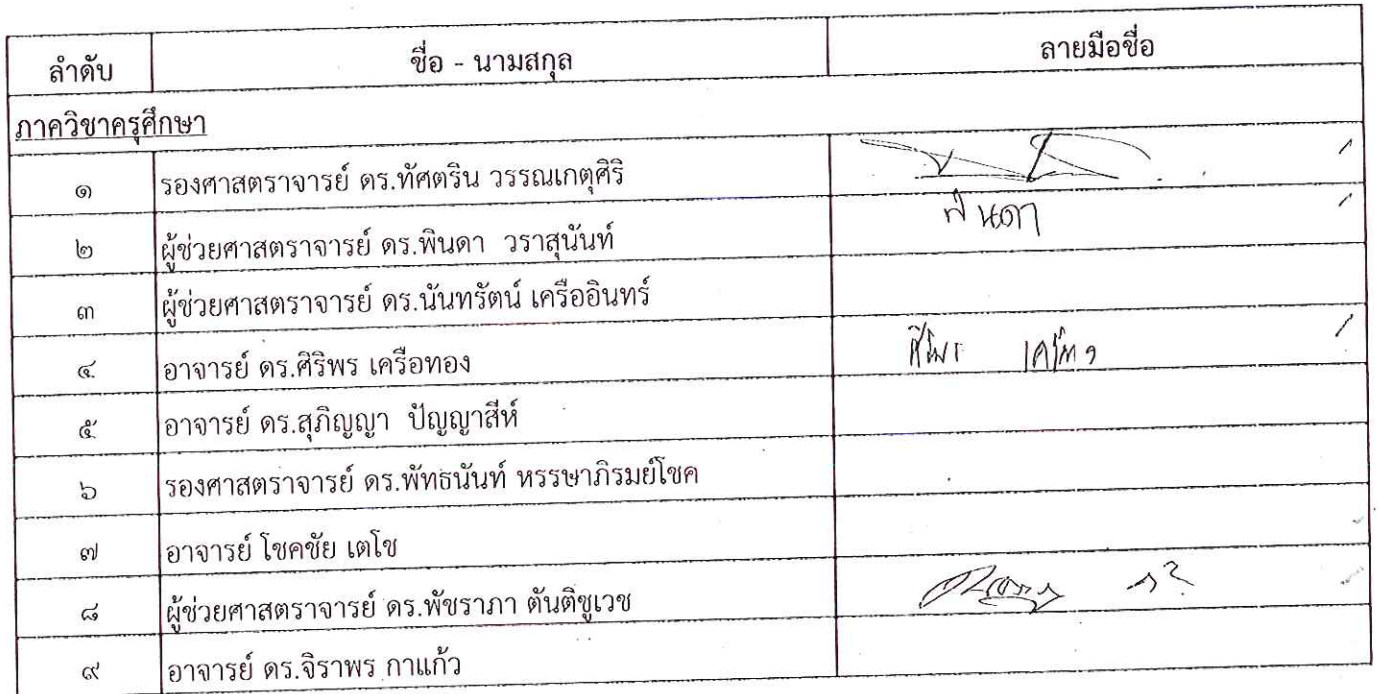 ลำดับ ชื่อ - นามสกุล ลายมือชื่อ
ภาควิชาครุศึกษา
๑ รองศาสตราจารย์ ดร.ทัศตริน วรรณเกตุศิริ
๒ ผู้ช่วยศาสตราจารย์ ดร.พินดา วราสุนันท์ พินดา
๓ ผู้ช่วยศาสตราจารย์ ดร.นันทรัตน์ เครืออินทร์
๔ อาจารย์ ดร.ศิริพร เครือทอง
๕ อาจารย์ ดร.สุภิญญา ปัญญาสีห์
๖ รองศาสตราจารย์ ดร.พัทธนันท์ หรรษาภิรมย์โชค
๗ อาจารย์ โชคชัย เตโช
๘ ผู้ช่วยศาสตราจารย์ ดร.พัชราภา ตันติชูเวช
๙ อาจารย์ ดร.จิราพร กาแก้ว